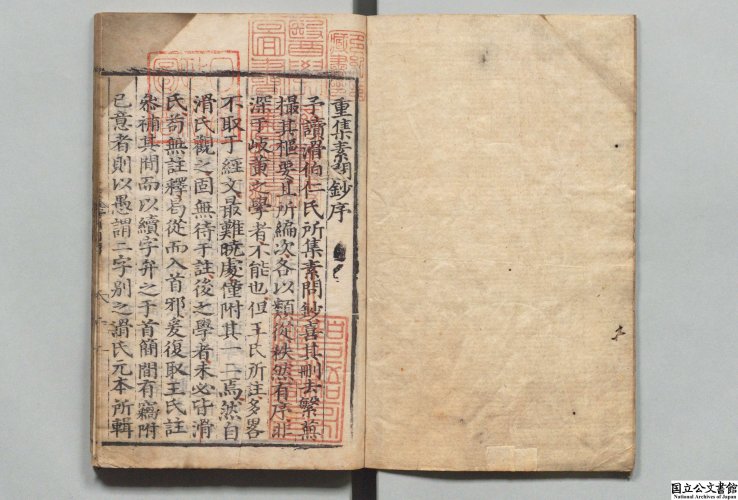 重集素問鈔序
予讀滑伯仁氏所集素問鈔喜其刪去繁蕪
撮其樞要且所編次各以類從秩然有序非
深于岐黃之學者不能也但王氏所註多畧
不取于經文最難曉處僅附其一二焉然自
滑氏觀之固無待于註後之學者未必皆滑
氏苟無註釋曷從而入首邪爰復取王氏註
參補其間而以續字弁之于首簡間有竊附
己意者則以愚謂二字別之滑氏元本所輯
国立公文書館
National Archives of Japan